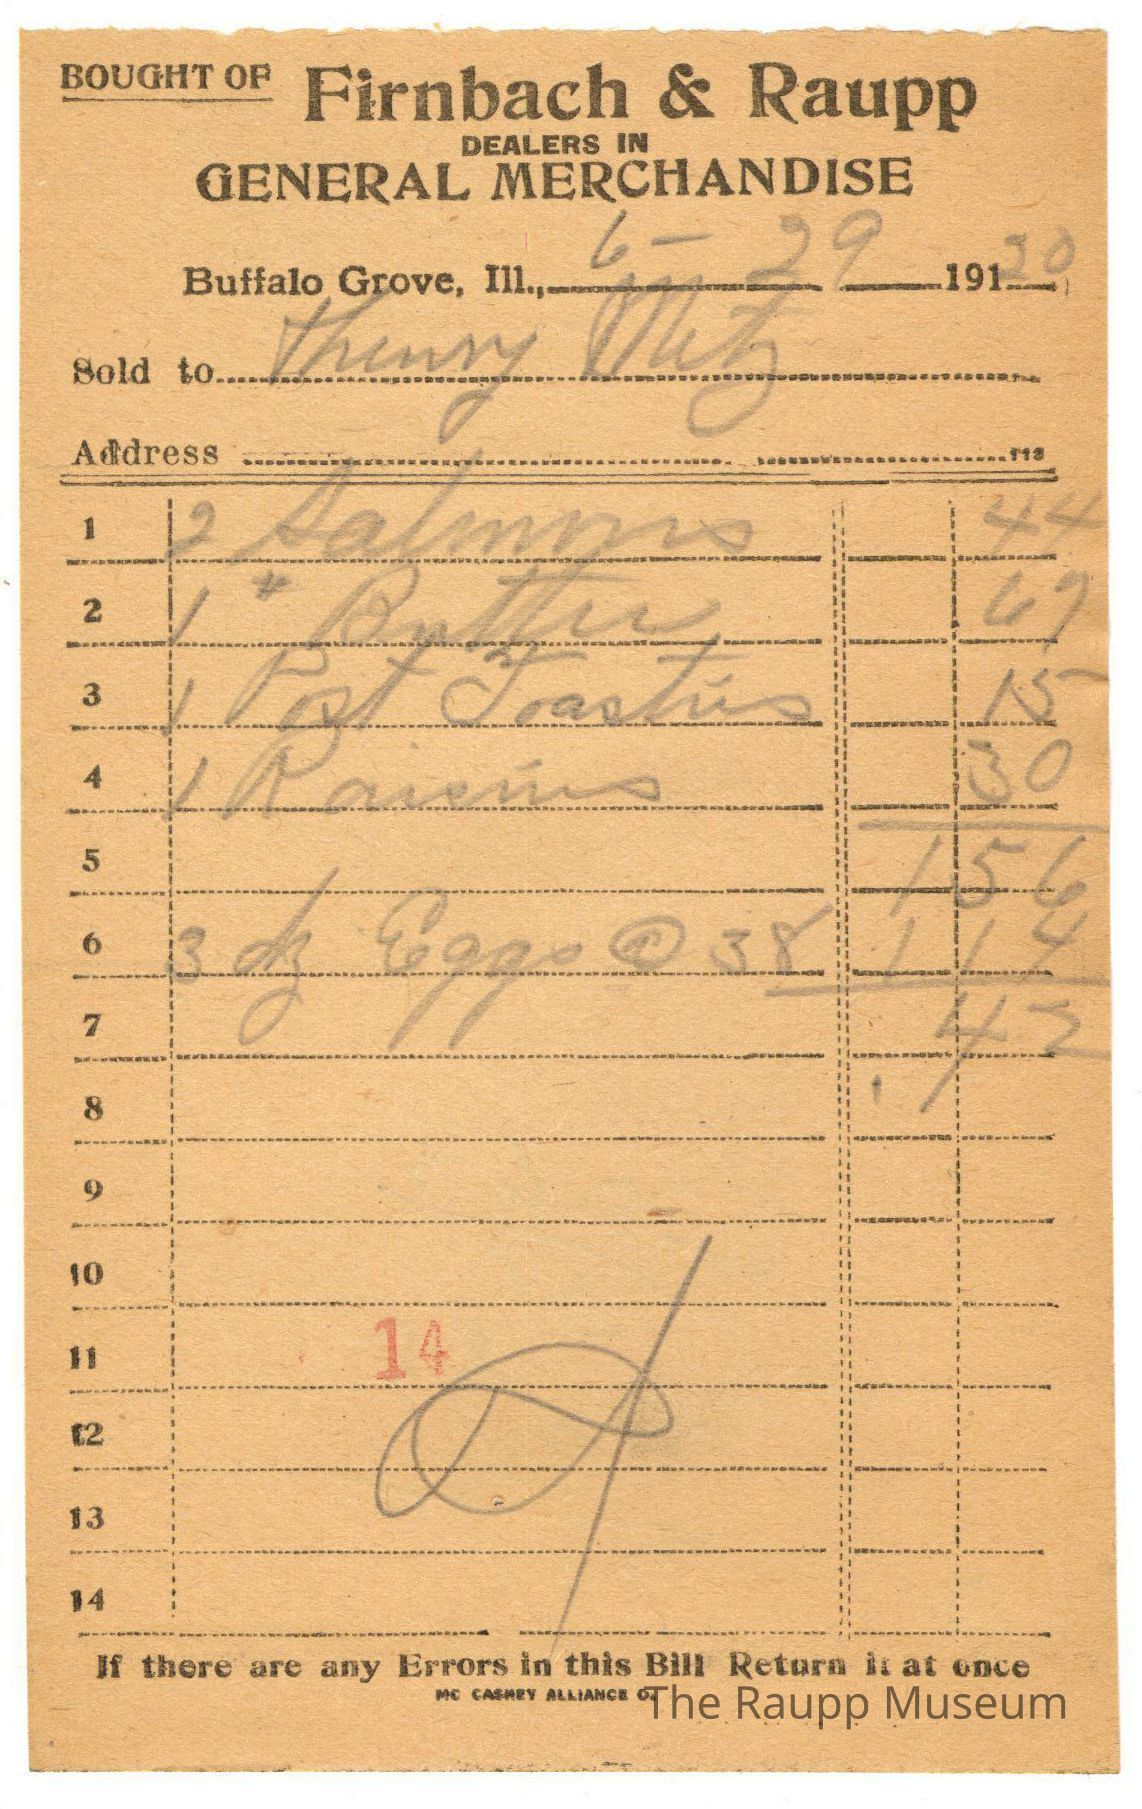 BOUGHT OF Firnbach & Raupp
DEALERS IN
GENERAL MERCHANDISE
Buffalo Grove, Ill., 6 - 29 191 20
Sold to Henry Metz
Address 113
1 2 Salmons 44
2 1 # Butter 67
3 1 Post Toasties 15
4 1 Raisins 30
5 156
6 3 dz Eggs @ 38 114
7 42
8
9
10
11 14
12
13
14
If there are any Errors in this Bill Return it at once
MC CASKEY ALLIANCE O.
The Raupp Museum